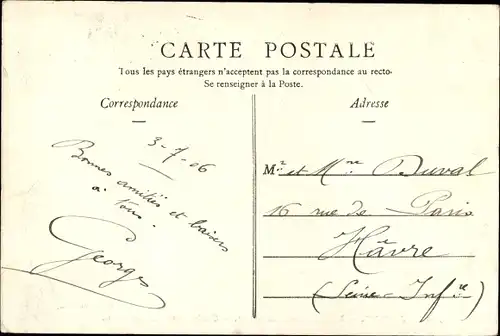 CARTE POSTALE
Tous les pays étrangers n'acceptent pas la correspondance au recto.
Se renseigner à la Poste.
Correspondance
Adresse
3-7-06
Bonnes amitiés et baisers
à tous.
Georges
M.r et Mme Duval
16 rue de Paris
Hâvre
(Seine-Infre)